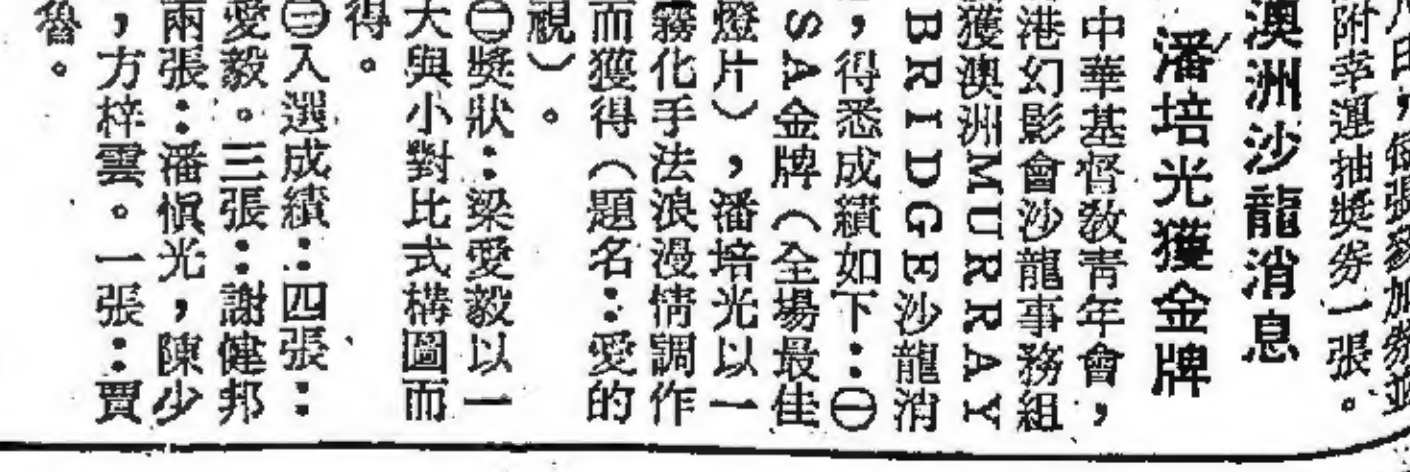 凡印,每張參加券並
附幸運抽獎券一張。
澳洲沙龍消息
潘培光獲金牌
中華基督教青年會,
港幻影會沙龍事務組
獲澳洲MURRAY
BRIDGE沙龍消
,得悉成績如下:㊀
SA金牌(全場最佳
燈片),潘培光以一
霧化手法浪漫情調作
而獲得(題名:愛的
視)。
㊁獎狀:梁愛毅以一
大與小對比式構圖而
得。
㊂入選成績:四張:
愛毅。三張:謝健邦
兩張:潘愼光,陳少
,方梓雲。一張:賈
魯。